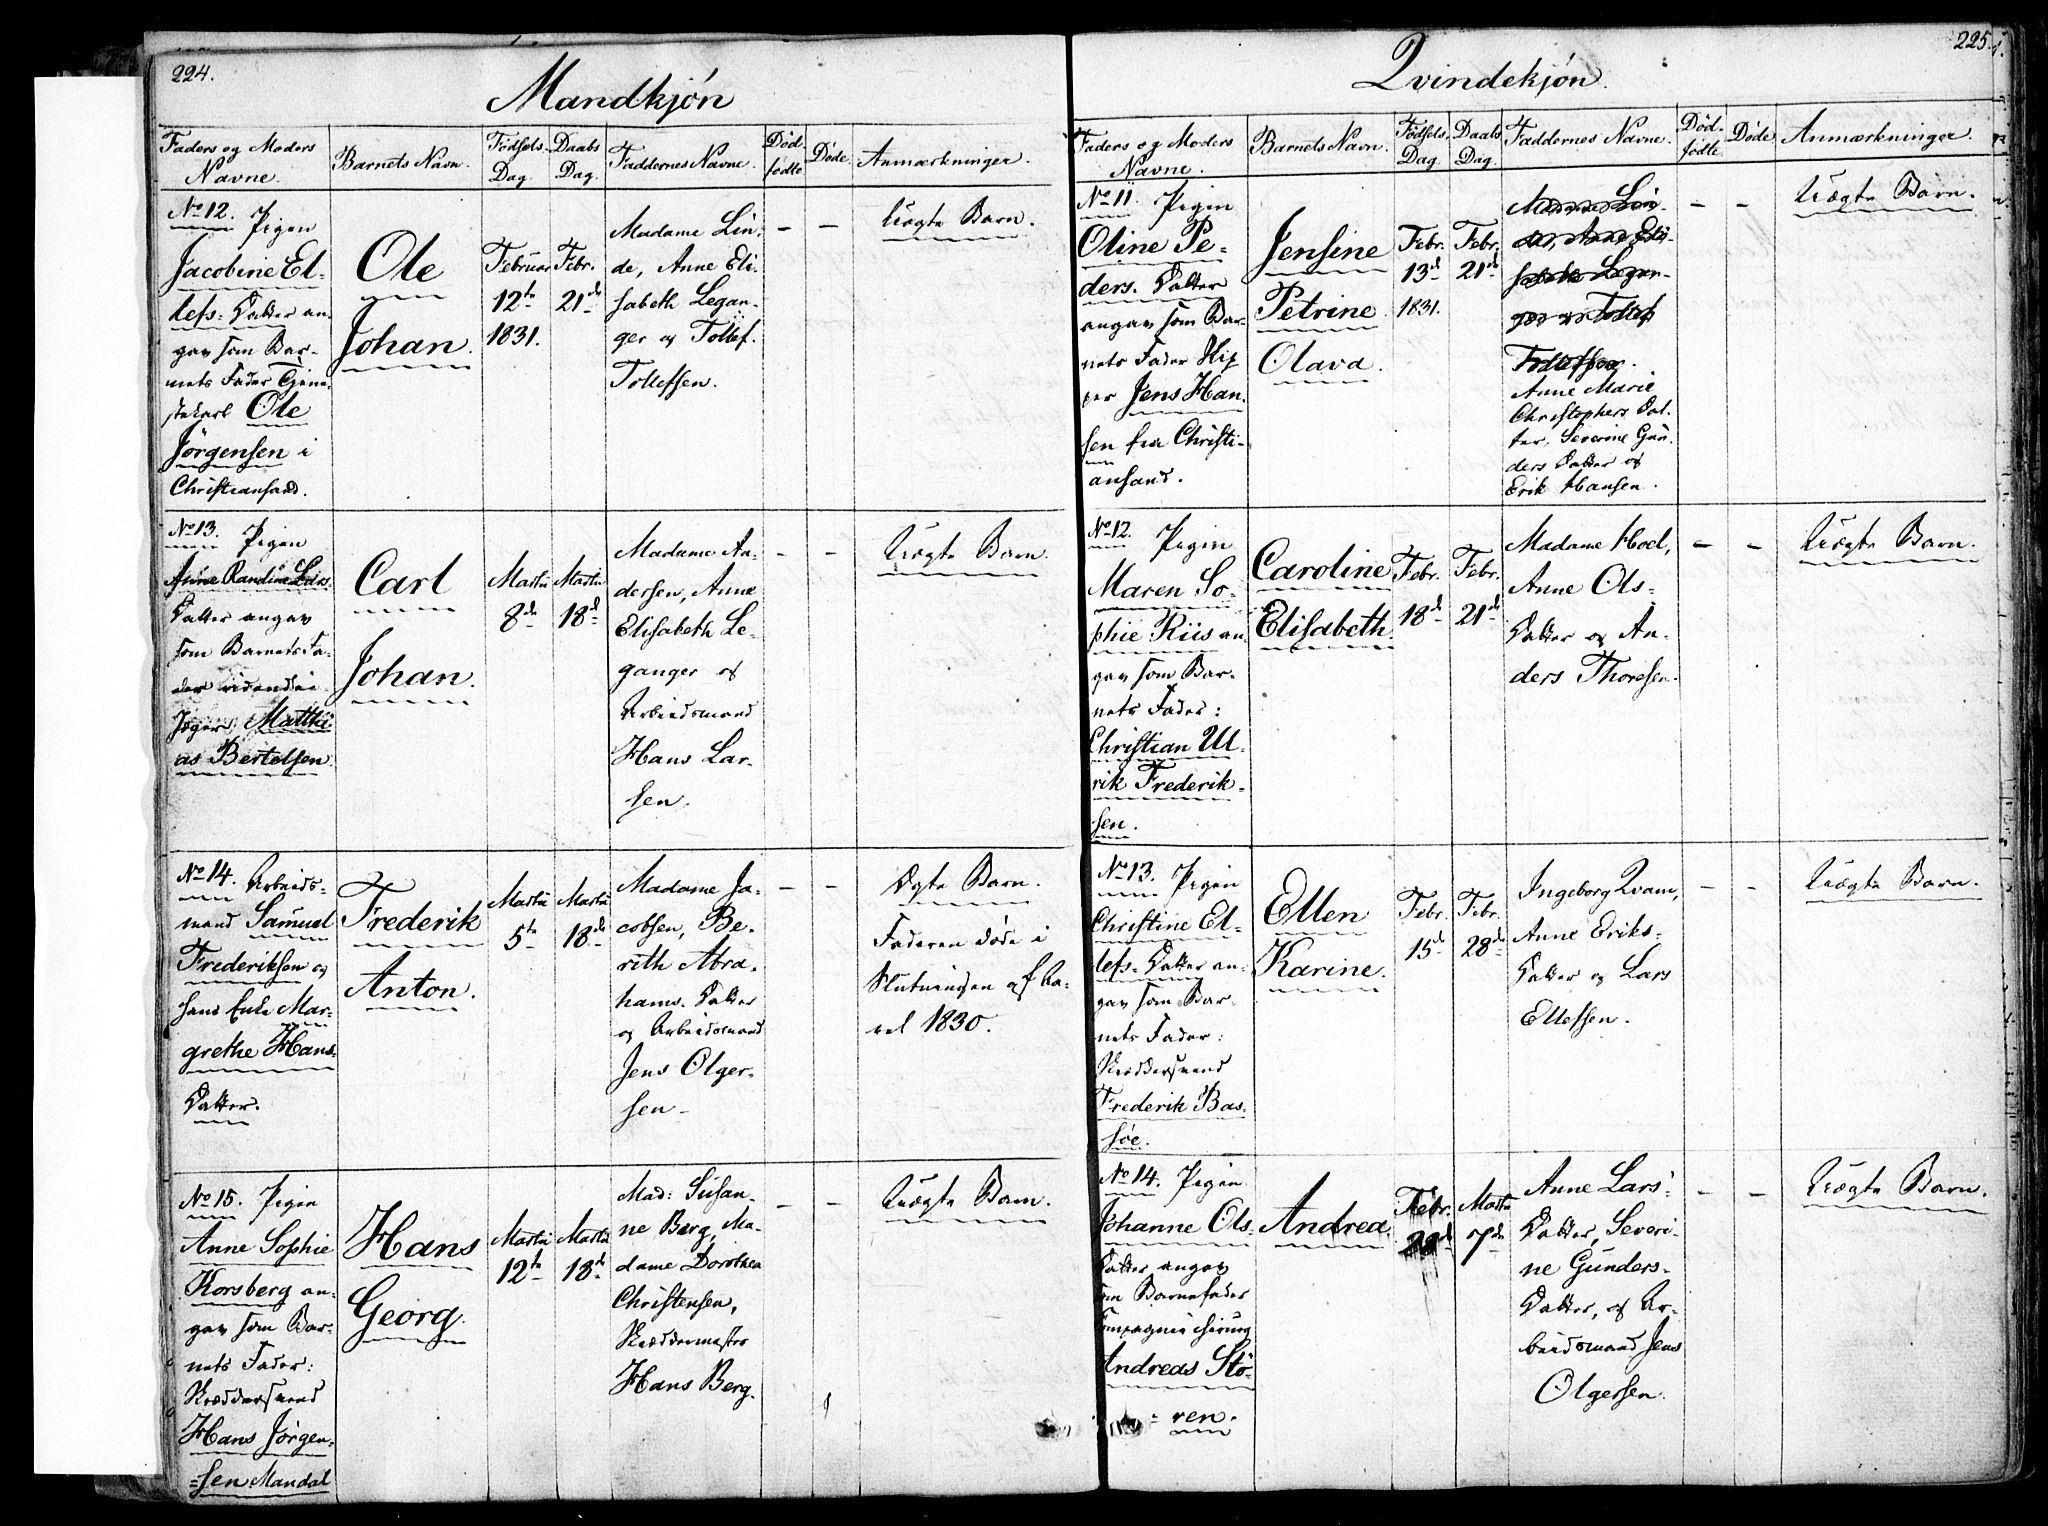 224.
Mandkjön
Faders og Moders
Navne.
Barnets Navn.
Födsels
Dag.
Daabs
Dag.
Faddernes Navne.
Död-
födte
Döde.
Anmærkninger.
No 12. Pigen
Jacobine El-
lefs- Datter an-
gav som Bar-
nets Fader Tjene-
stekarl Ole
Jörgensen i
Christiansand.
Ole
Johan.
Februar
12te
1831.
Febr.
21de
Madame Lin-
de, Anne Eli-
sabeth Legan-
ger og Tollef
Tollefsen.
- -
Uægte Barn.
No 13. Pigen
Anne Randine Lars
Datter angav
som Barnets Fa-
der ridende
Jæger, Matthi-
as Bertelsen.
Carl
Johan.
Martii
8de
Martii
18d
Madame An-
dersen, Anne
Elisabeth Le-
ganger og
Arbeidsmand
Hans Lar-
sen.
- -
Uægte Barn.
No 14. Arbeids-
mand Samuel
Frederiksen og
hans Enke Mar-
grethe Hans-
Datter.
Frederik
Anton.
Martii
5te
Martii
18de
Madame Ja-
cobsen, Be-
rith Abra-
hams. Datter
og Arbeidsmand
Jens Olger-
sen -
- -
Ægte Barn.
Faderen döde i
Slutningen af Aa-
ret 1830.
No 15. Pigen
Anne Sophie
Korsberg an-
gav som Bar-
nets Fader:
Skræddersvend
Hans Jörgen-
=sen Mandal
Hans
Georg.
Martii
12te
Martii
18de
Mad: Susan-
ne Berg, Ma-
dame Dorothea
Christensen,
Skræddermester
Hans Berg.
- -
Uægte Barn.
225.
Qvindekjön.
Faders og Moders
Navne.
Barnets Navn.
Födsels
Dag.
Daabs
Dag.
Faddernes Navne.
Död-
födte
Döde
Anmærkninger.
No 11. Pigen
Oline Pe-
ders. Datter
angav som Bar-
nets Fader Skip
per Jens Han-
sen fra Christi-
ansand.
Jensine
Petrine
Olava.
Febr.
13d
1831.
Febr.
21de
Madame Lin-
de, Anne Eli-
sabeth Legan-
ger og Tollef
Tollefsen.
Anne Marie
Christophers Dat-
ter, Severine Gun-
ders Datter og
Erik Hansen.
- -
Uægte Barn.
No 12. Pigen
Maren So-
phie Riis an-
gav som Bar-
nets Fader:
Christian Ul-
rik Frederik-
sen.
Caroline
Elisabeth.
Febr.
18d
Febr.
21de
Madame Hoel,
Anne Ols-
Datter og An-
ders Thoresen.
- -
Uægte Barn.
No 13. Pigen
Christine El-
lefs- Datter an-
gav som Bar-
nets Fader:
Skræddersvend
Frederik Bas-
söe.
Ellen
Karine.
Febr.
15d
Febr.
28de
Ingeborg Qvam,
Anne Eriks-
Datter og Lars
Ellefsen.
- -
Uægte Barn.
No 14. Pigen
Johanne Ols-
Datter angav
som Barnefader
Compagnie Chirurg
Andreas Stö-
= ren.
Andrea.
Febr.
Martii
7de
Anne Lars'
Datter, Severi-
ne Gunders-
Datter, og Ar-
beidsmand Jens
Olgersen.
- -
Uægte Barn.